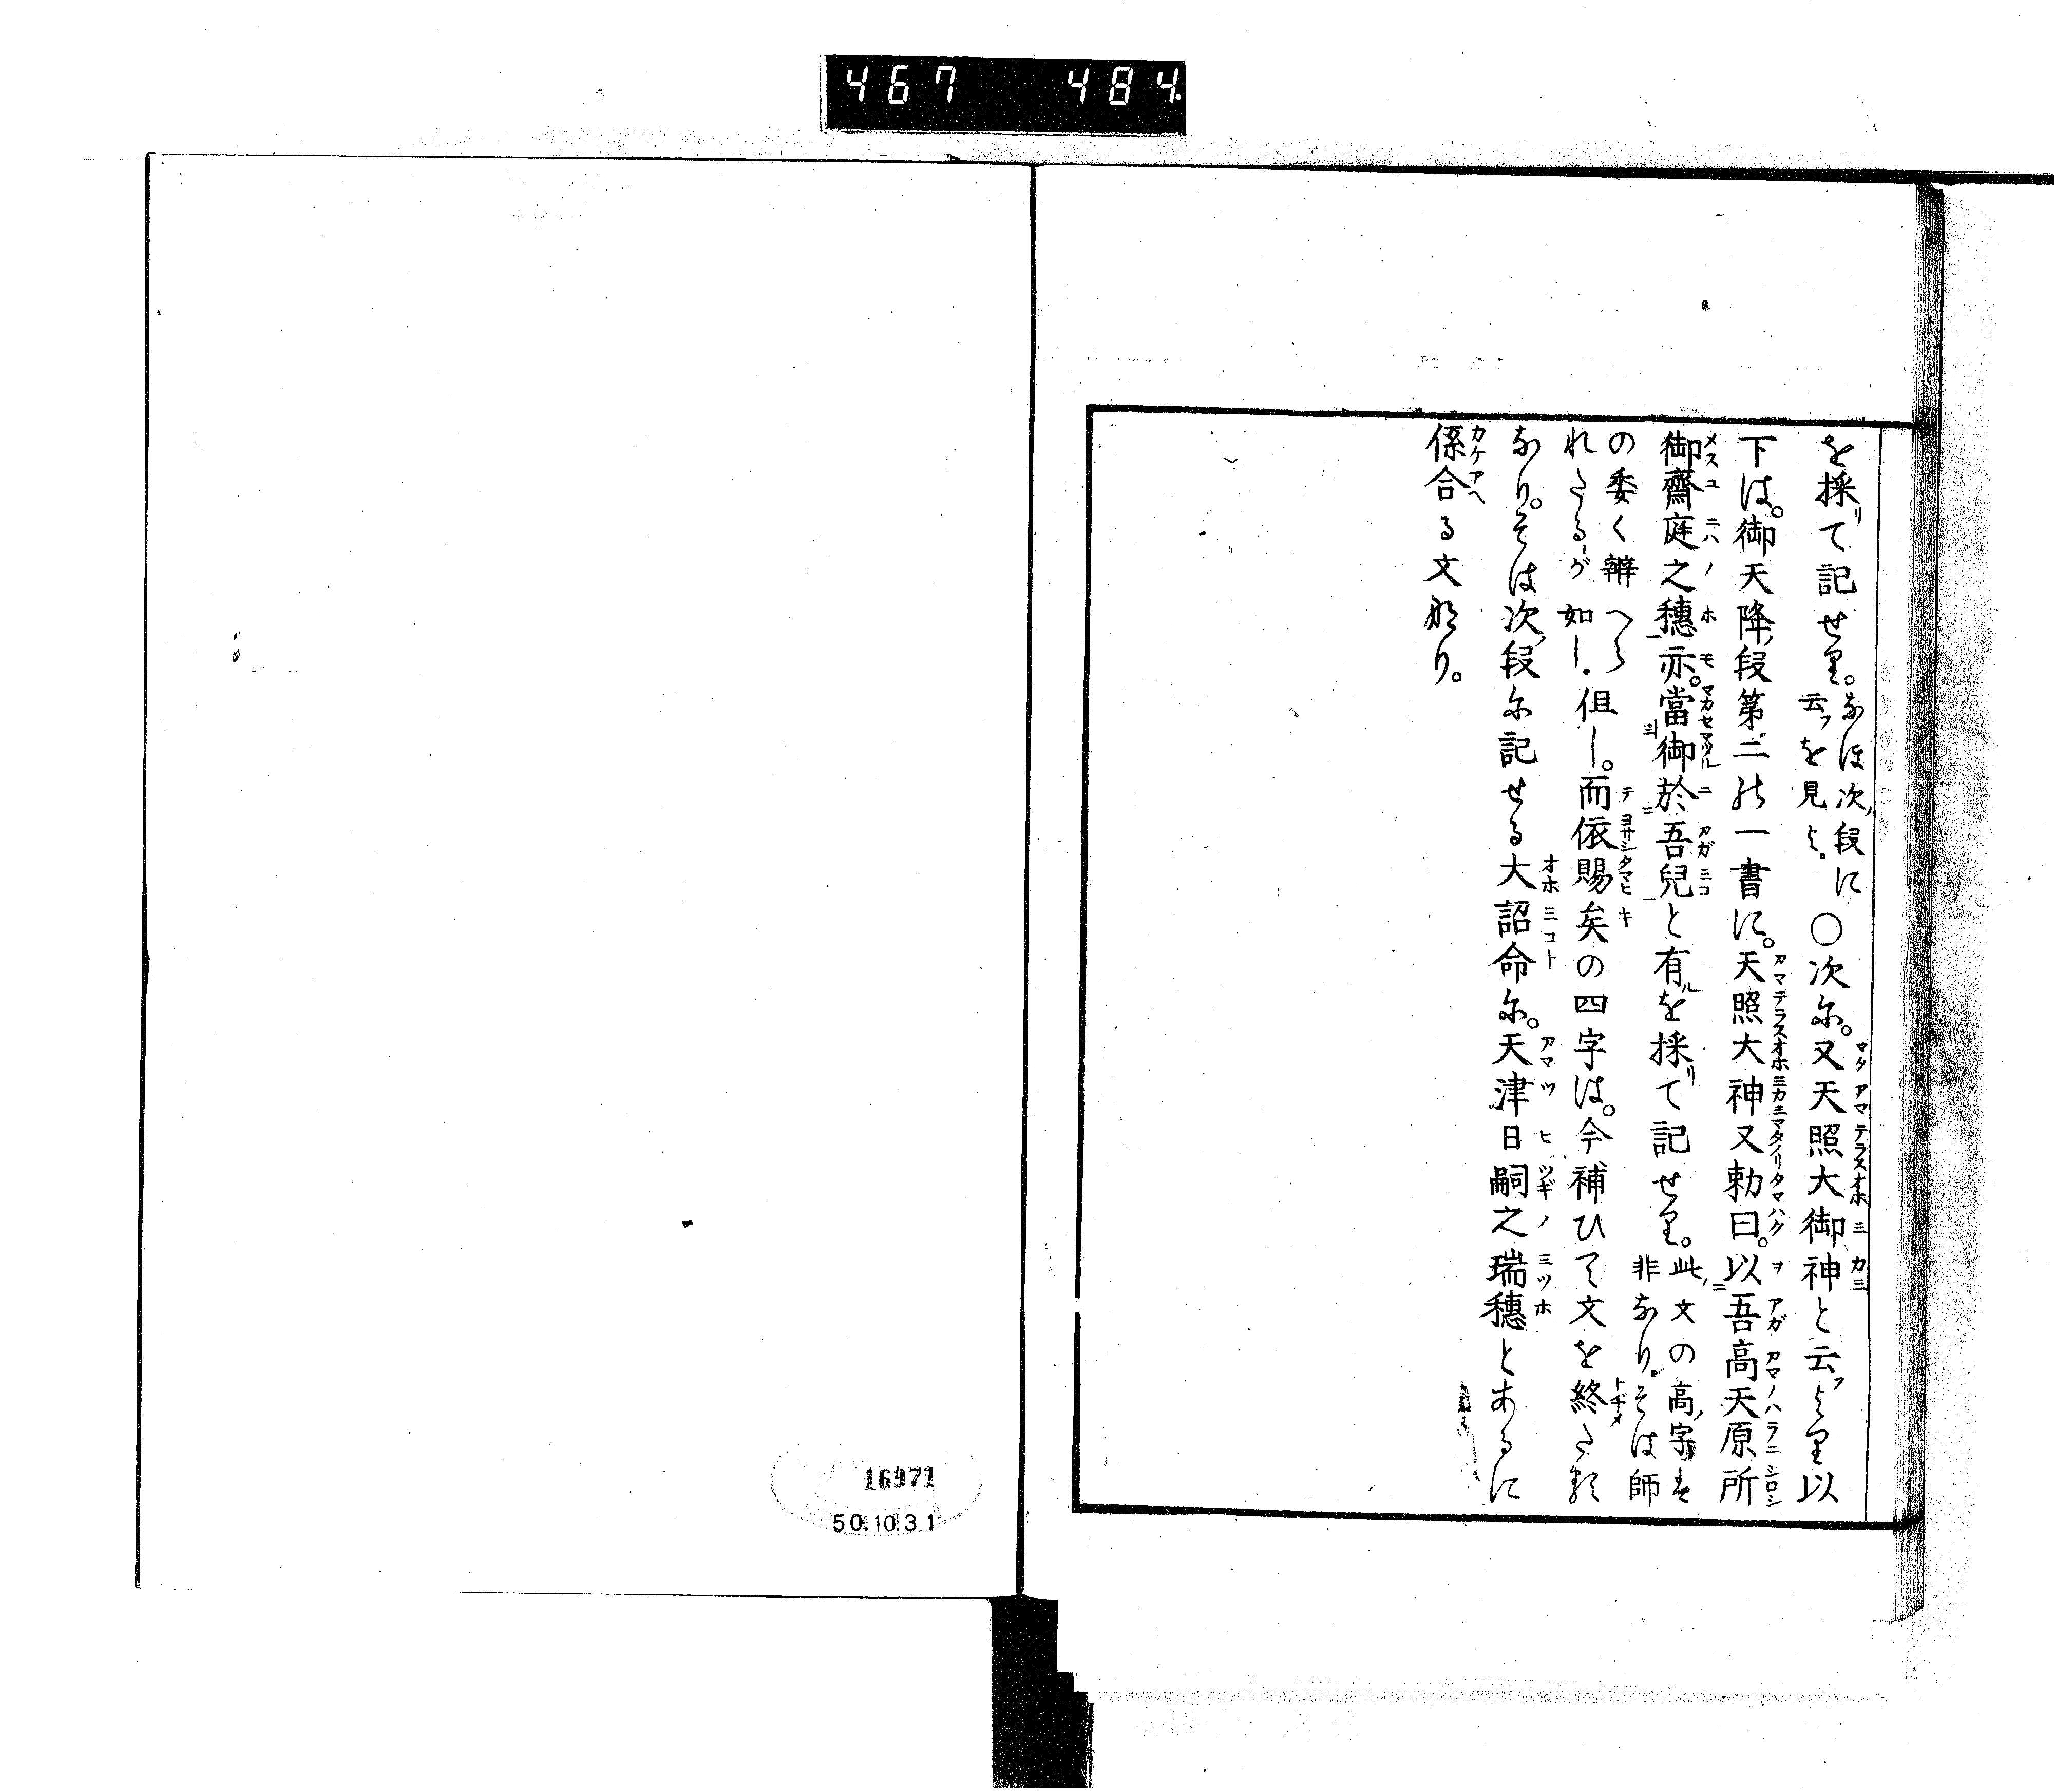 467 484
を採リて記せり。なほ次ノ段に云フを見よ。○次に。又天照大御神と云フより以
下は。御天降ノ段第二の一書に。天照大神又勅曰。以吾高天原所
御齋庭之穗亦。當御於吾兒と有ルを採リて記せり。此ノ文の高ノ字は非なり。そは師
の委く辨へられたるが如し。但し。而依賜矣の四字は。今補ひて文を終たる
なり。そは次ノ段に記せる大詔命に。天津日嗣之瑞穗とあるに
係合る文なり。
16971
50.10.31